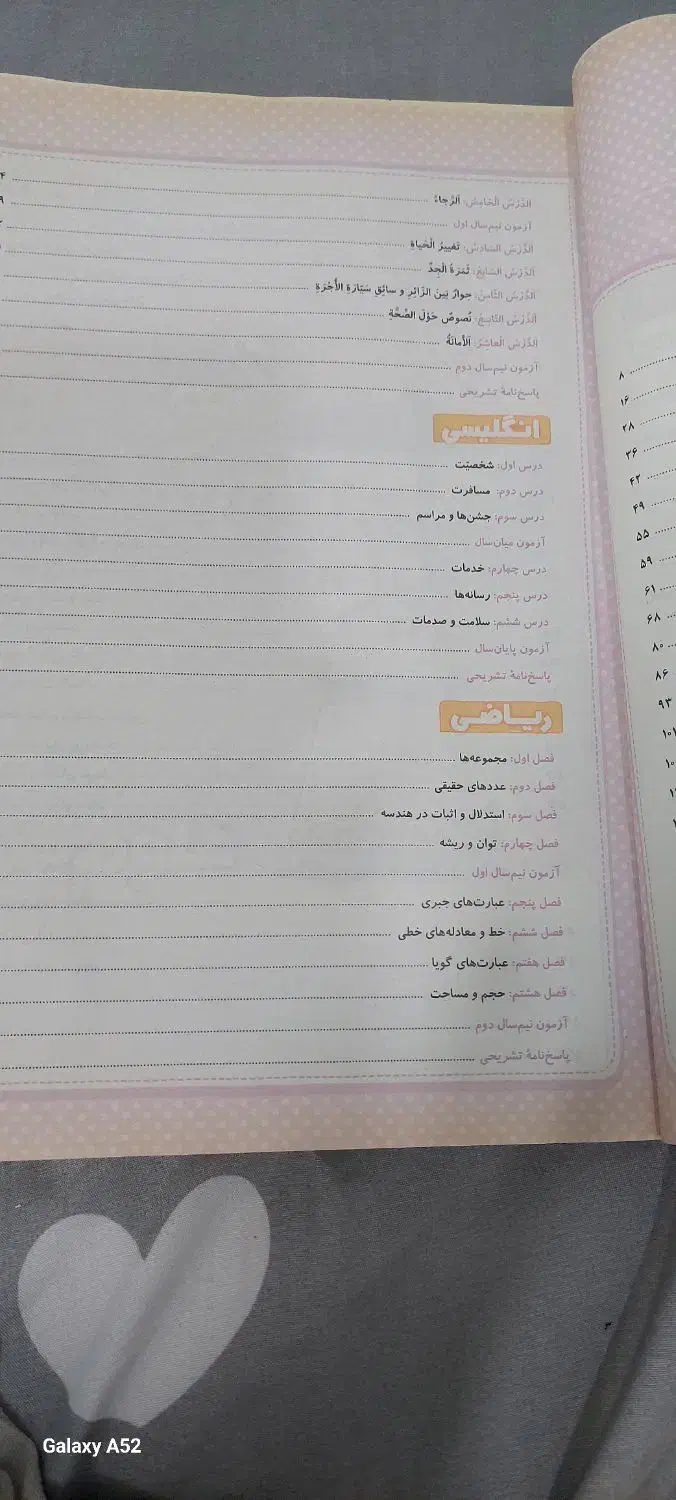 اَلدَّرْسُ الْخامِسُ: اَلرَّجاءُ ۴
آزمون نیم‌سال اول ۹
اَلدَّرْسُ السّادِسُ: تَغييرُ الْحَياةِ
اَلدَّرْسُ السّابِعُ: ثَمَرَةُ الْجِدِّ
اَلدَّرْسُ الثّامِنُ: حِوارٌ بَينَ الزّائِرِ و سائِقِ سَيّارَةِ الأُجْرَةِ
اَلدَّرْسُ التّاسِعُ: نُصوصٌ حَوْلَ الصِّحَّةِ
اَلدَّرْسُ الْعاشِرُ: اَلْأَمانَةُ
آزمون نیم‌سال دوم
پاسخ‌نامهٔ تشریحی
انگلیسی
درس اول: شخصیّت
درس دوم: مسافرت
درس سوم: جشن‌ها و مراسم
آزمون میان‌سال
درس چهارم: خدمات
درس پنجم: رسانه‌ها
درس ششم: سلامت و صدمات
آزمون پایان‌سال
پاسخ‌نامهٔ تشریحی
ریاضی
فصل اول: مجموعه‌ها
فصل دوم: عددهای حقیقی
فصل سوم: استدلال و اثبات در هندسه
فصل چهارم: توان و ریشه
آزمون نیم‌سال اول
فصل پنجم: عبارت‌های جبری
فصل ششم: خط و معادله‌های خطی
فصل هفتم: عبارت‌های گویا
فصل هشتم: حجم و مساحت
آزمون نیم‌سال دوم
پاسخ‌نامهٔ تشریحی
۸
۱۶
۲۸
۳۶
۴۲
۴۹
۵۵
۵۹
۶۱
۶۸
۸۰
۸۶
۹۳
Galaxy A52